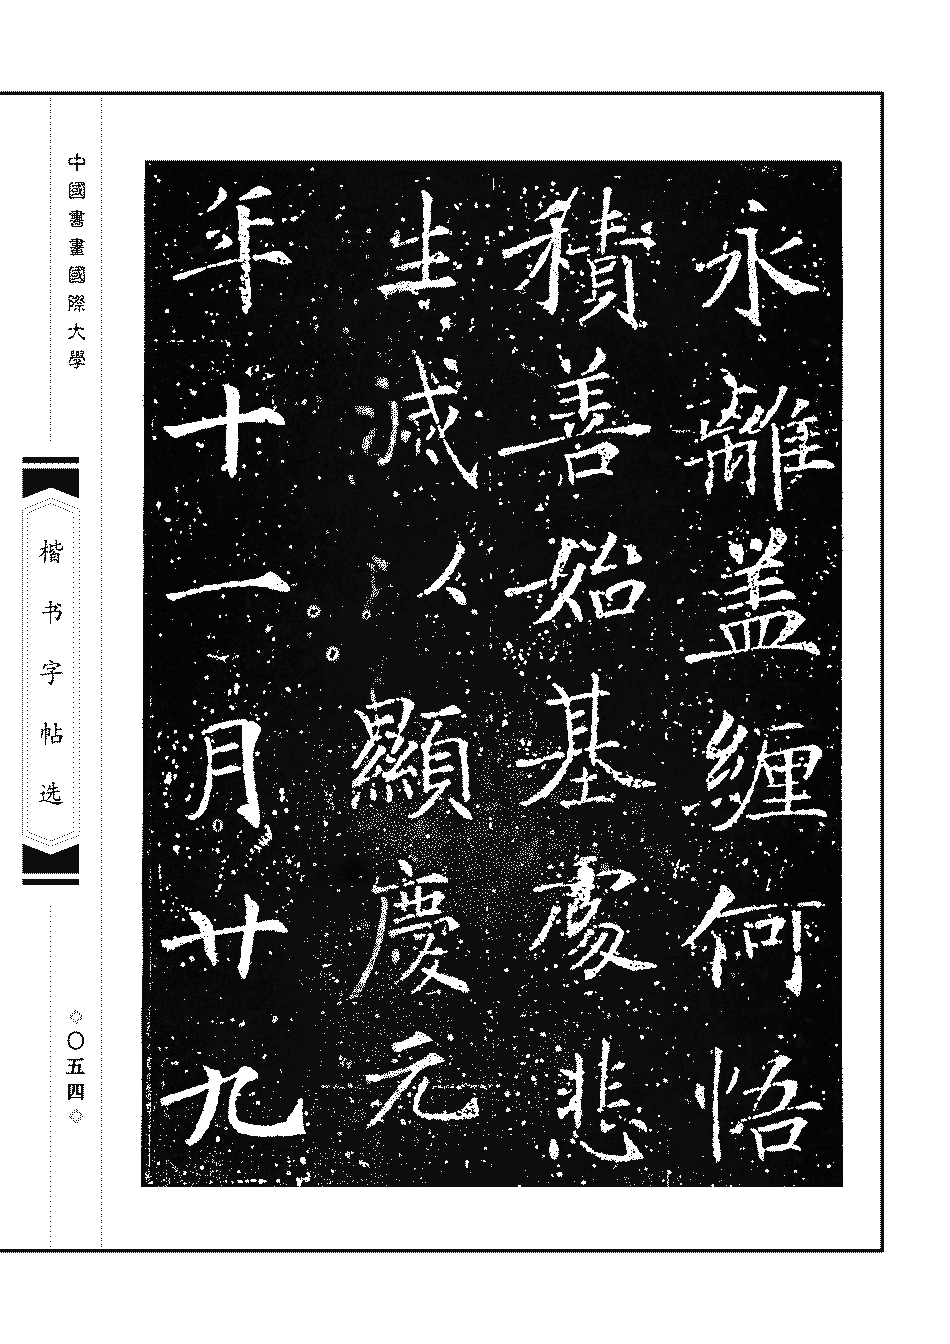 永離盖纏何悟
積善始基處悲
生滅以顯慶元
年十一月廿九
中國書畫國際大學
楷书字帖选
◇〇五四◇